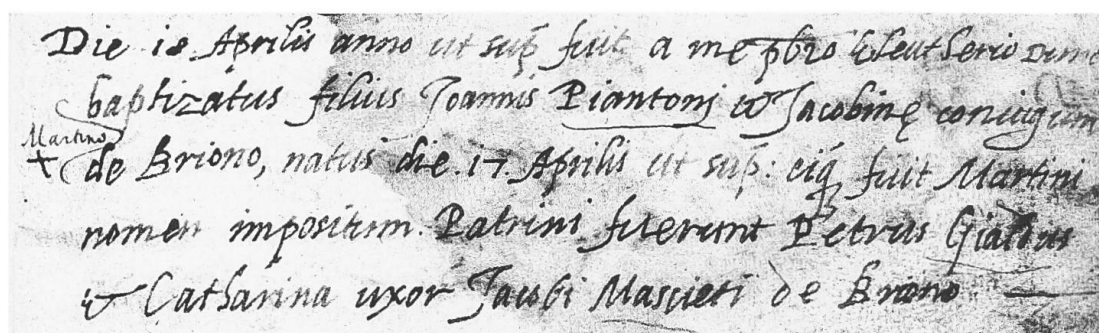 Die 18 Aprilis anno ut sup. fuit a me pbro Eleutherio
baptizatus filius Joannis Piantonj & Jacobinę coniugum
Martino
+ de Briono, natus die .17. Aprilis ut sup: eiq fuit Martini
nomen impositum. Patrini fuerunt Petrus Gialdus
& Catharina uxor Jacobi Mascieti de Briono